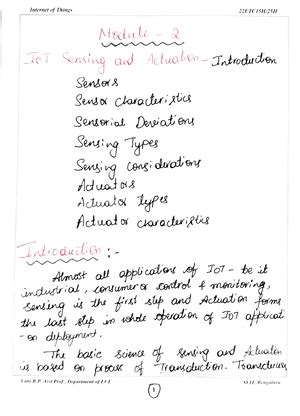 Internet of Things 22ETC15H/25H
Module - 2
IoT Sensing and Actuation - Introduction
Sensors
Sensor characteristics
Sensorial Deviations
Sensing Types
Sensing considerations
Actuators
Actuator Types
Actuator characteristics
Introduction :-
Almost all applications of IoT - be it
industrial, consumer or control & monitoring,
sensing is the first step and Actuation forms
the last step in whole operation of IoT applicat
-on deployment.
The basic science of sensing and Actuation
is based on process of Transduction. Transduction
Asst Prof, Department of ECE Bengaluru
1